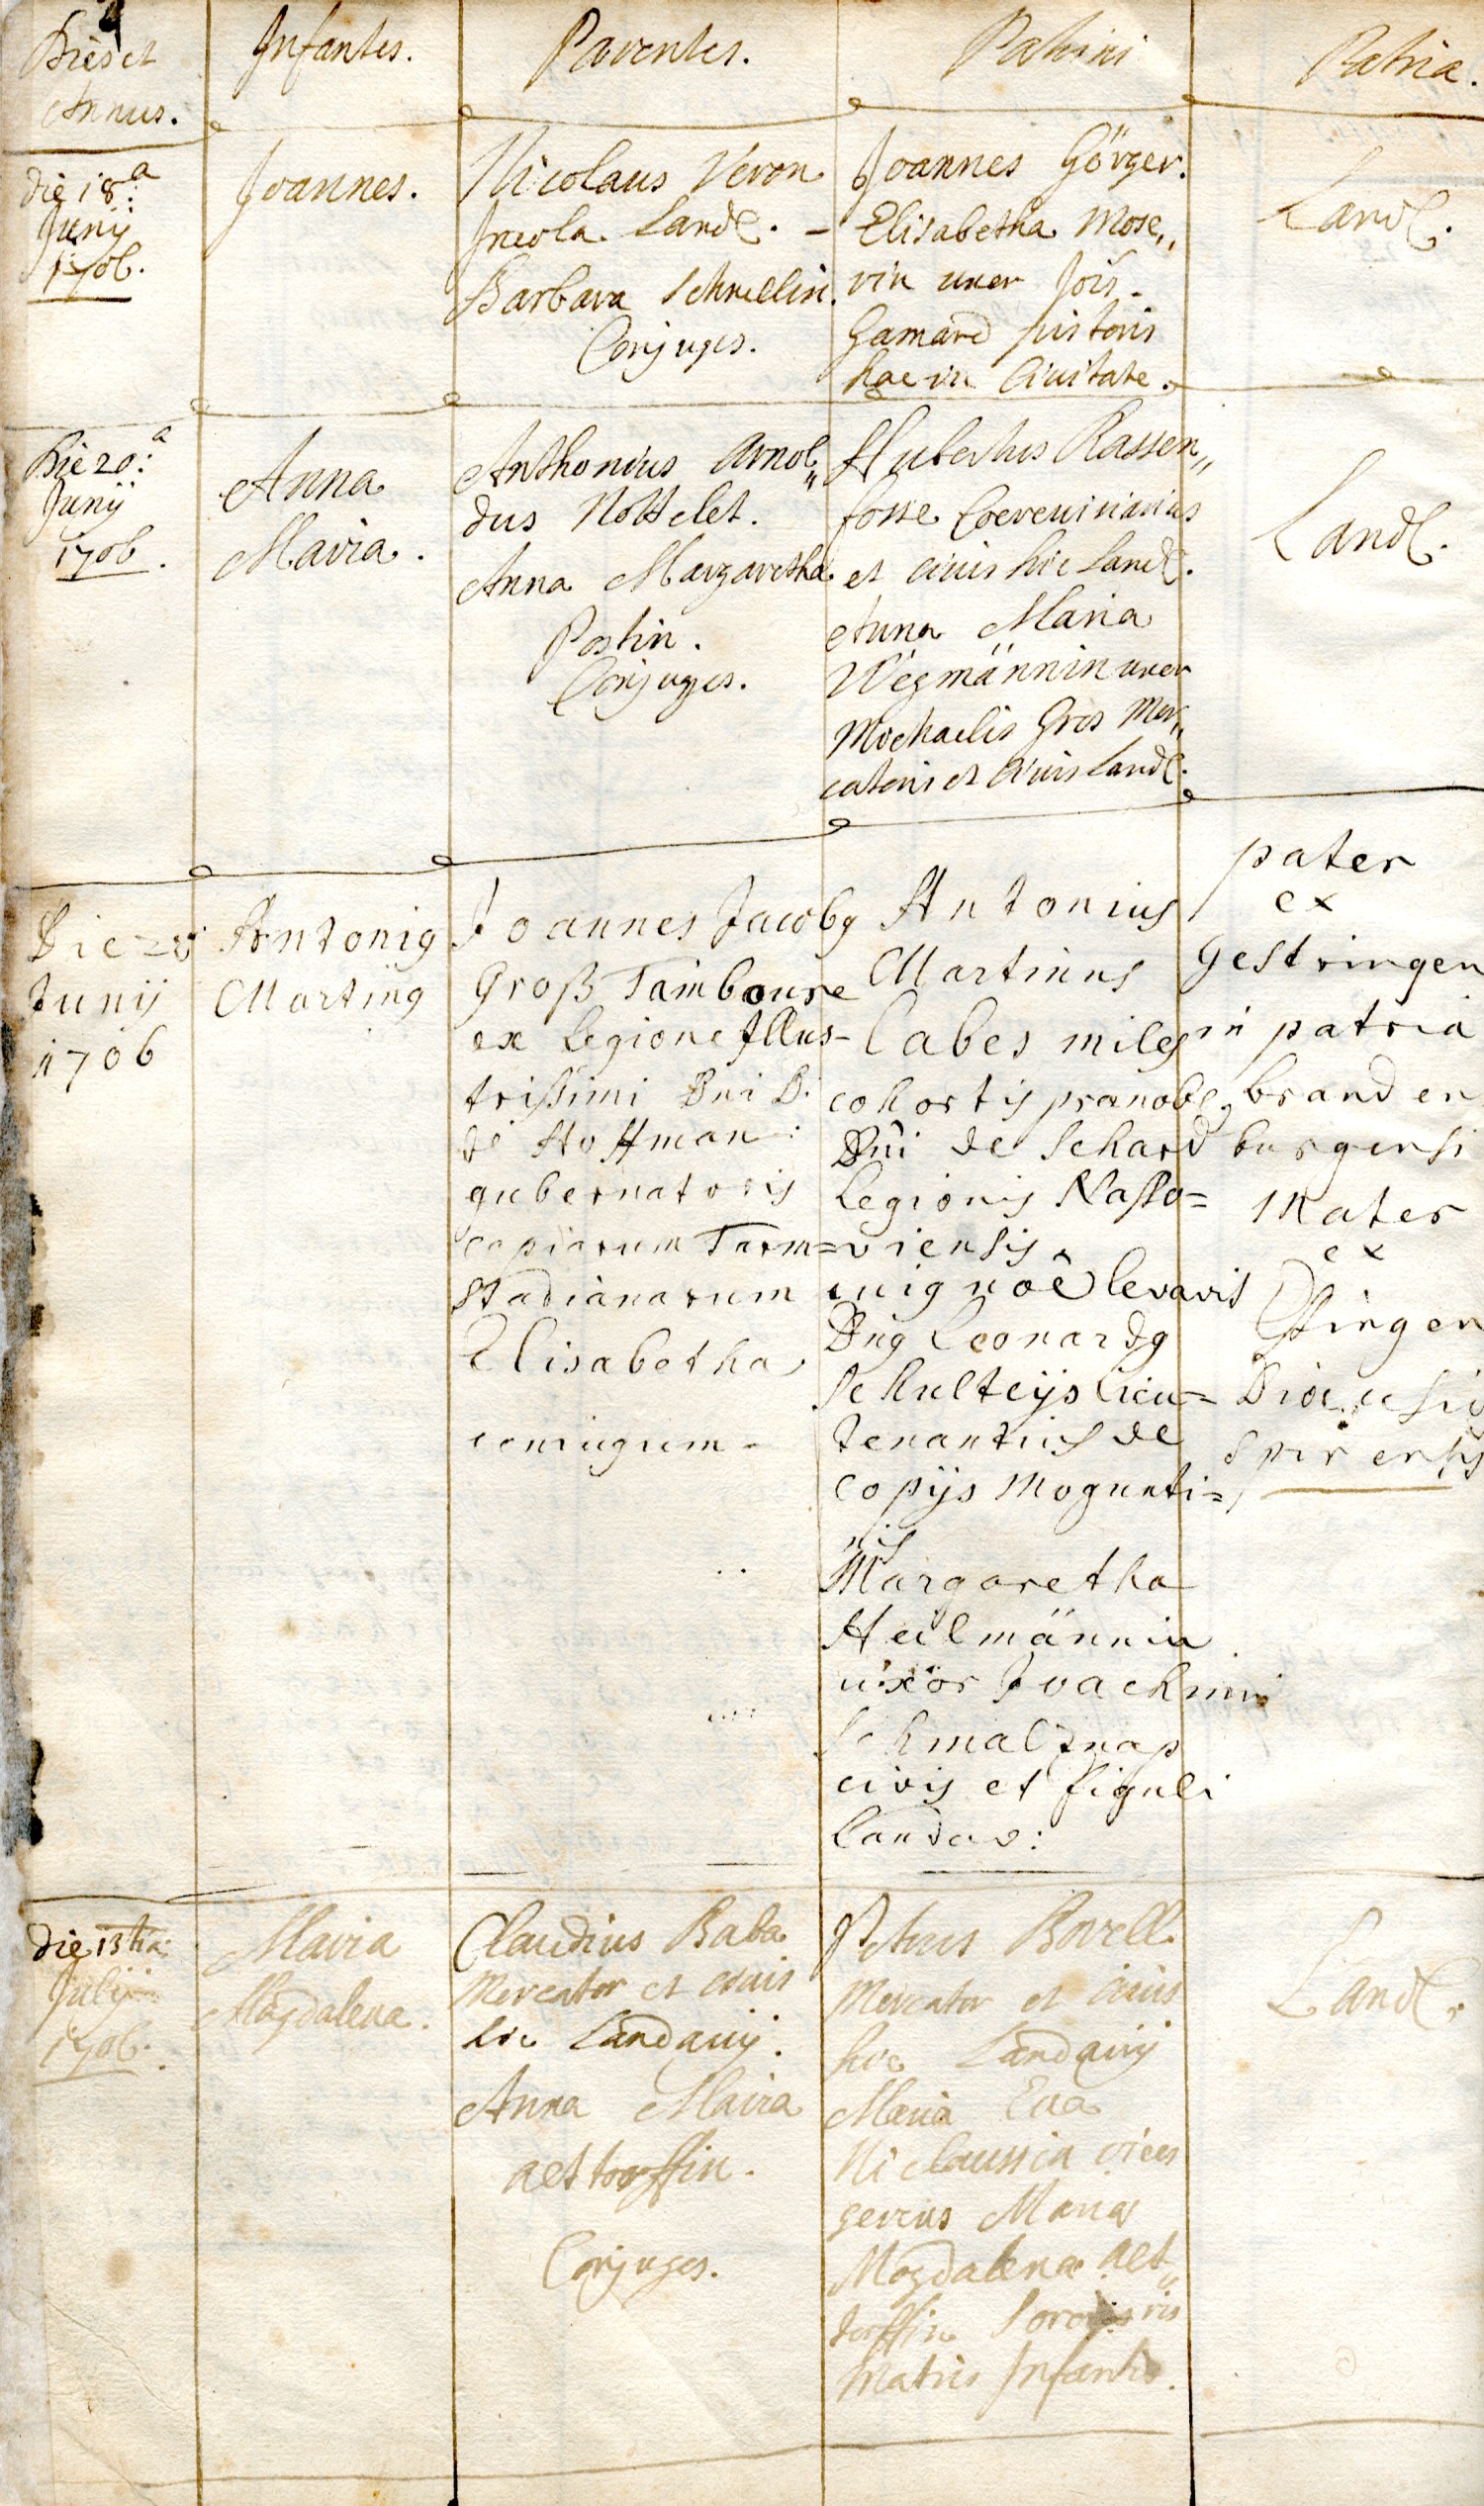 Dies et
Annus.
Infantes.
Parentes.
Patrini
Patria.
die 18.a
Junij
1706.
Joannes.
Nicolaus Veron
Incola Land.
Barbara Schnellin.
Conjuges.
Joannes Görger.
Elisabetha Mose„
rin uxor Jois
Gamard pistoris
hac in Civitate.
Land.
Die 20.a
Junij
1706.
Anna
Maria.
Anthonius Arnol„
dus Nottelet.
Anna Margaretha
Postin.
Conjuges.
Hubertus Rassen„
fosse Cerevisiarius
et civis hic Land.
Anna Maria
Wegmännin uxer
Michaelis Gros Mer„
catoris et civis Land.
Land.
Die
Junij
1706
Antonig
Marting
Joannes Jacobg
Groß Tamboure
ex Legione Illus-
trißimi Dni D.
de Hoffman:
gubernatoris
copiarum Tarm=
stadianarum
Elisabetha
coniugum
Antonius
Martinus
Cabes miles
cohortis pranobe
Dni de Schard
Legionis Naßo=
viensis,
cuig noê levavit
Dng Leonardg
Schulteijs lieu=
tenantius de
copijs Mogunti=
nis
Margaretha
Heilmännin
uxor Joachimi
Schmaltznap
civis et figuli
Landav:
pater
ex
Gestringen
in patria
branden
burgensi
Mater
ex
Dioecesis
Spirensis
die 13tia
Julij
1706.
Maria
Magdalena.
Claudius Baba
Mercator et civis
hic Landavij.
Anna Maria
Alttorffin.
Conjuges.
Petrus Borell
Mercator et civis
hic Landavij
Maria Eva
Niclaussin vices
gerens Maria
Magdalena Alt„
torffin Sororis
Matris Infantis.
Land.